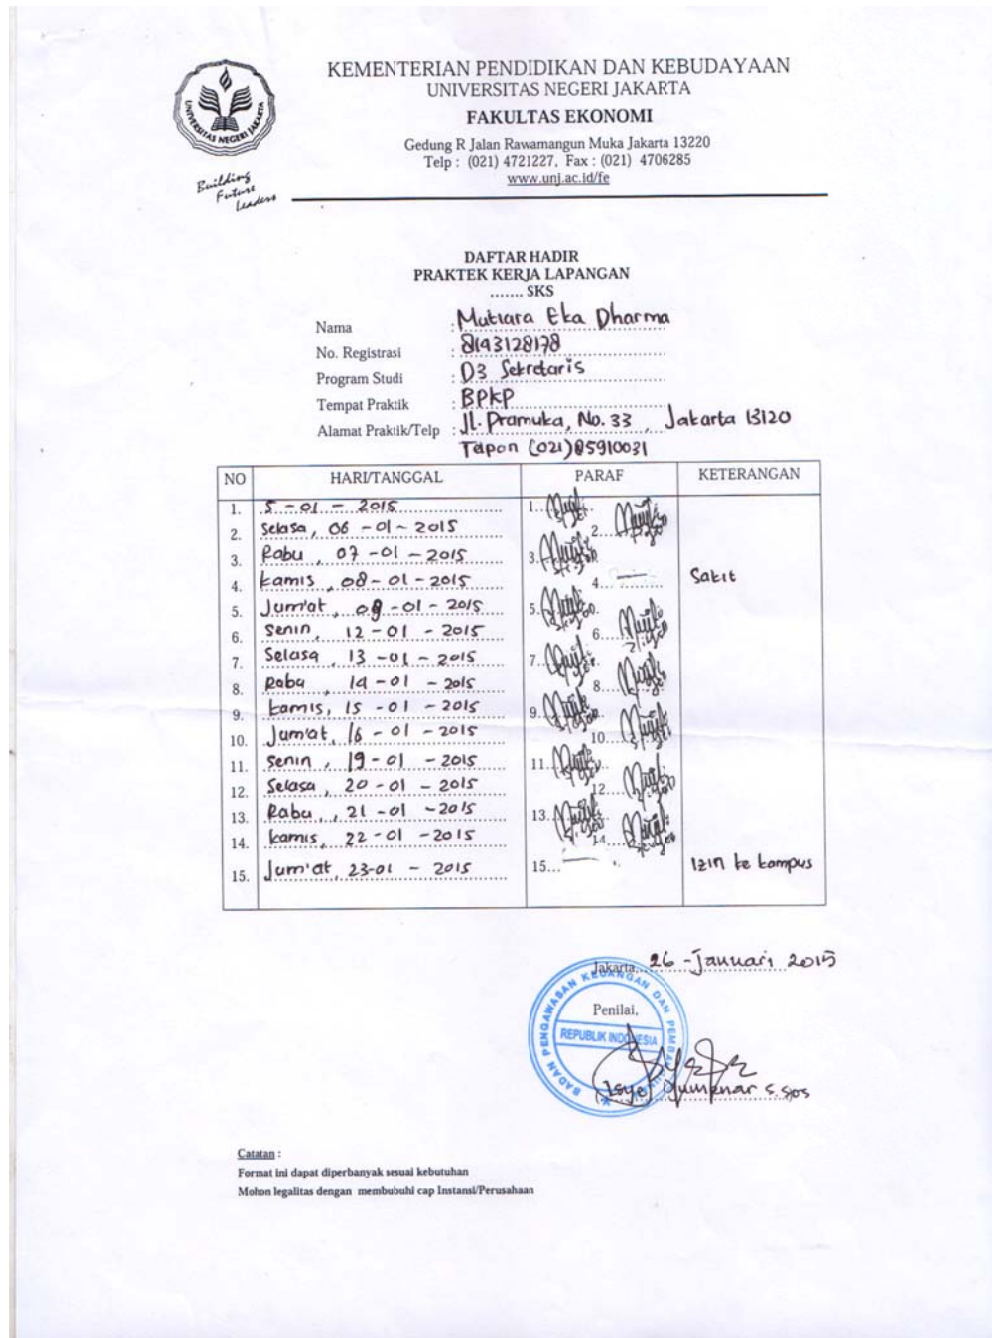 KEMENTERIAN PENDIDIKAN DAN KEBUDAYAAN
UNIVERSITAS NEGERI JAKARTA
FAKULTAS EKONOMI
Gedung R Jalan Rawamangun Muka Jakarta 13220
Telp : (021) 4721227, Fax : (021) 4706285
www.unj.ac.id/fe
UNIVERSITAS NEGERI JAKARTA
Building
Future
Leaders
DAFTAR HADIR
PRAKTEK KERJA LAPANGAN
....... SKS
Nama : Mutiara Eka Dharma
No. Registrasi : 8143128178
Program Studi : D3 Sekretaris
Tempat Praktik : BPKP
Alamat Praktik/Telp : Jl. Pramuka, No. 33, Jakarta 13120
(021) 85910031
NO HARI/TANGGAL PARAF KETERANGAN
1. 5 - 01 - 2015 1.
2. Selasa, 06 - 01 - 2015 2.
3. Rabu, 07 - 01 - 2015 3.
4. kamis, 08 - 01 - 2015 4. Sakit
5. Jum'at, 09 - 01 - 2015 5.
6. Senin, 12 - 01 - 2015 6.
7. Selasa, 13 - 01 - 2015 7.
8. Rabu, 14 - 01 - 2015 8.
9. kamis, 15 - 01 - 2015 9.
10. Jum'at, 16 - 01 - 2015 10.
11. Senin, 19 - 01 - 2015 11.
12. Selasa, 20 - 01 - 2015 12.
13. Rabu, 21 - 01 - 2015 13.
14. kamis, 22 - 01 - 2015 14.
15. Jum'at, 23-01 - 2015 15... Izin ke kampus
Jakarta, 26 - Januari 2015
Penilai,
BADAN PENGAWASAN KEUANGAN DAN
REPUBLIK INDONESIA
Catatan :
Format ini dapat diperbanyak sesuai kebutuhan
Mohon legalitas dengan membubuhi cap Instansi/Perusahaan